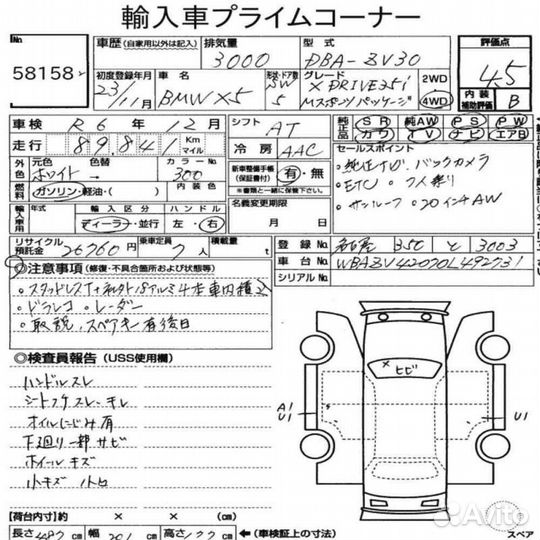 輸入車プライムコーナー
58158
車歴 (自家用以外は記入)
排気量 3000
型式 DBA-ZV30
評価点 4.5
初度登録年月 23/11月
車名 BMW X5
形状・ドア数 SW 5
グレード X DRIVE35i Mスポーツパッケージ
2WD
4WD
内装補助評価 B
車検 R6年12月
シフト AT
純正品 SR 純AW PS PW
カワ TV ナビ エアB
走行 89,841 Km マイル
冷房 AAC
セールスポイント
外色 元色 ホワイト 色替 カラーNo. 300
新車整備手帳(保証書付) 有・無
・純正ナビ・バックカメラ
燃料 ガソリン・軽油・( ) 内装色
※書類と一緒に保管して下さい。
・ETC ・7人乗り
名義変更期限 月 日
・サンルーフ ・20インチAW
輸入車用 年式 輸入区分 ハンドル
ディーラー・並行 左・右
リサイクル預託金 20760円 乗車定員 7人 積載量 t
登録No. 350 と 3003
車台No. WBAZV42070L492731
シリアルNo.
◎注意事項(修復・不具合箇所および状態等)
・ドラレコ ・レーダー
・取説、スペアキー有後日
◎検査員報告(USS使用欄)
ハンドルスレ
シートフケスレ・キレ
オイルにじみ有
下廻り一部サビ
ホイールキズ
小キズ
ヒビ
A1
U1
U1
【荷台内寸】約 × × (cm)
長さ 487 cm 幅 cm 高さ cm
←(車検証上の寸法)
スペア
Avito